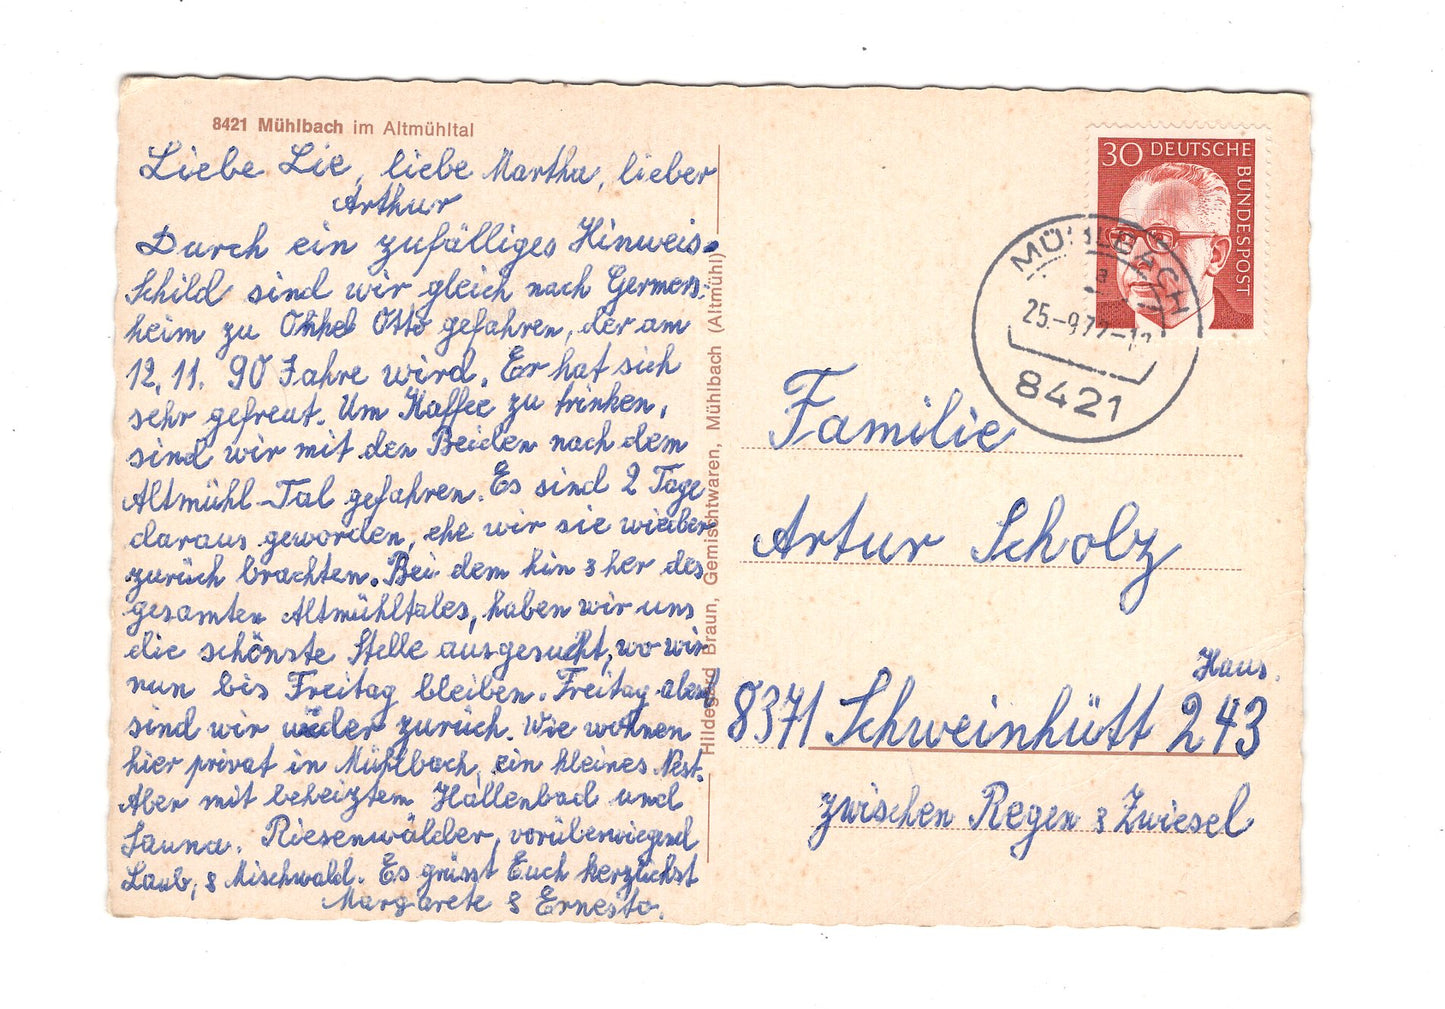 8421 Mühlbach im Altmühltal
Liebe Lie, liebe Martha, lieber
Arthur
Durch ein zufälliges Hinweis-
Schild sind wir gleich nach Germers-
heim zu Onkel Otto gefahren, der am
12.11. 90 Jahre wird. Er hat sich
sehr gefreut. Um Kaffee zu trinken,
sind wir mit den Beiden nach dem
Altmühl-Tal gefahren. Es sind 2 Tage
daraus geworden, ehe wir sie wieder
zurück brachten. Bei dem hin & her des
gesamten Altmühltales, haben wir uns
die schönste Stelle ausgesucht, wo wir
nun bis Freitag bleiben. Freitag abend
sind wir wieder zurück. Wie wohnen
hier privat in Mühlbach, ein kleines Nest.
Aber mit beheiztem Hallenbad und
Sauna. Riesenwälder, vorüberwiegend
Laub, & Mischwald. Es grüsst Euch herzlichst
Margarete & Ernesto.
Hildegard Braun, Gemischtwaren, Mühlbach (Altmühl)
30 DEUTSCHE
BUNDESPOST
MÜHLBACH
a
25.-9.72-
8421
Familie
Artur Scholz
Haus.
8371 Schweinhütt 243
zwischen Regen & Zwiesel